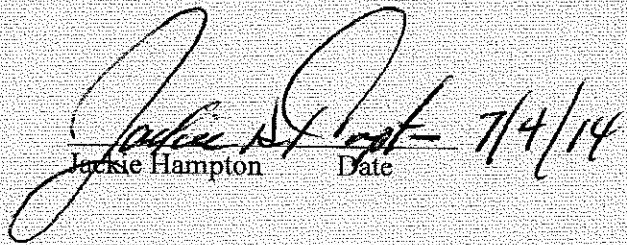 Jackie Hampton 7/4/14
Jackie Hampton Date